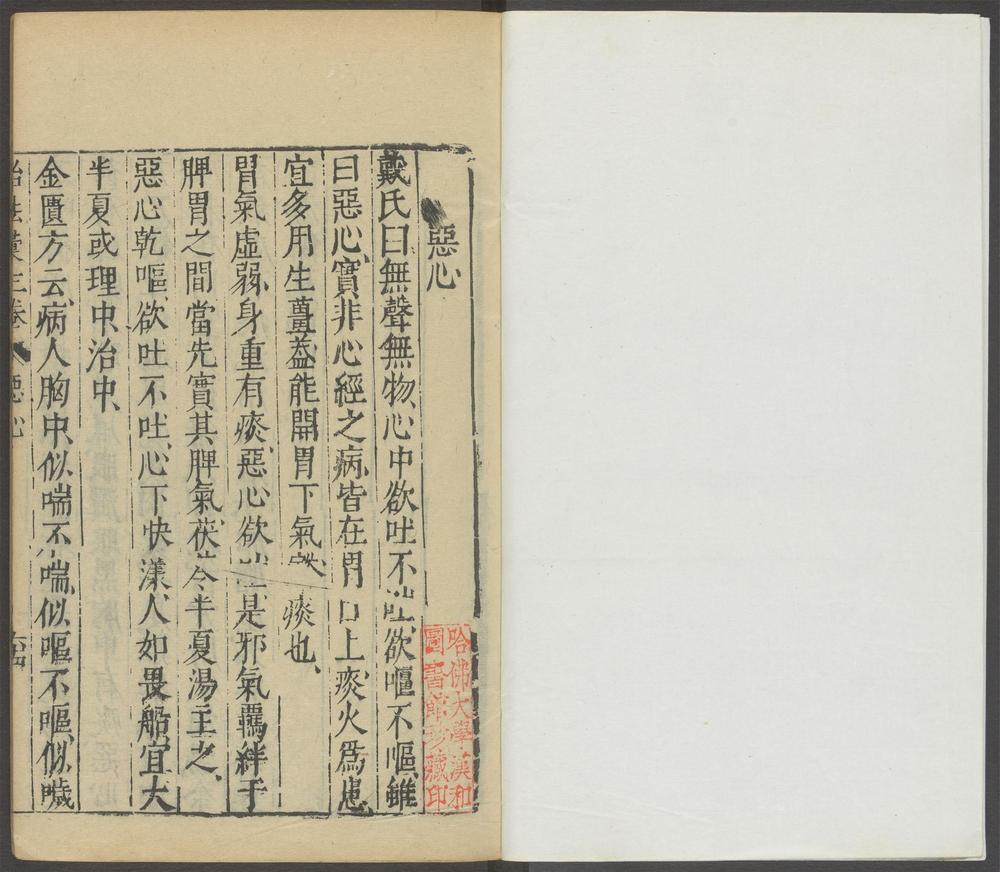 惡心
戴氏曰無聲無物、心中欲吐不吐、欲嘔不嘔、雖
曰惡心、實非心經之病、皆在胃口上、痰火爲患、
宜多用生薑、蓋能開胃下氣、痰也、
胃氣虛弱、身重有痰、惡心欲吐、是邪氣羈絆于
脾胃之間、當先實其脾氣、茯苓半夏湯主之、
惡心乾嘔、欲吐不吐、心下快漾、人如畏船、宜大
半夏或理中、治中、
金匱方云、病人胸中、似喘不喘、似嘔不嘔、似噦
治法彙三卷 惡心 六十四
哈佛大學漢和
圖書館珍藏印